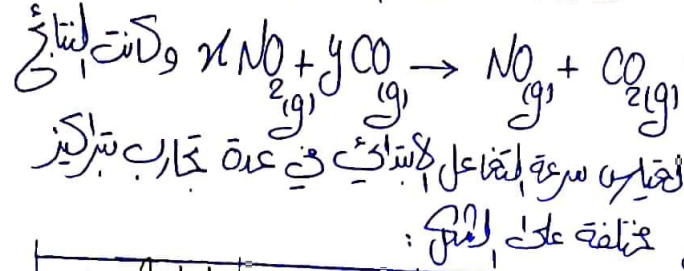 xNO2(g) + yCO(g) → NO(g) + CO2(g) وكانت النتائج
لقياس سرعة التفاعل الابتدائي في عدة تجارب بتراكيز
مختلفة على الشكل :